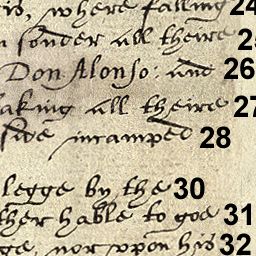 is, where falling 24
sonder all theire 25
Don Alonso: and 26
aking all theire 27
side incamped 28
legge by the 30
ther hable to goe 31
ge, nor vpon his 32